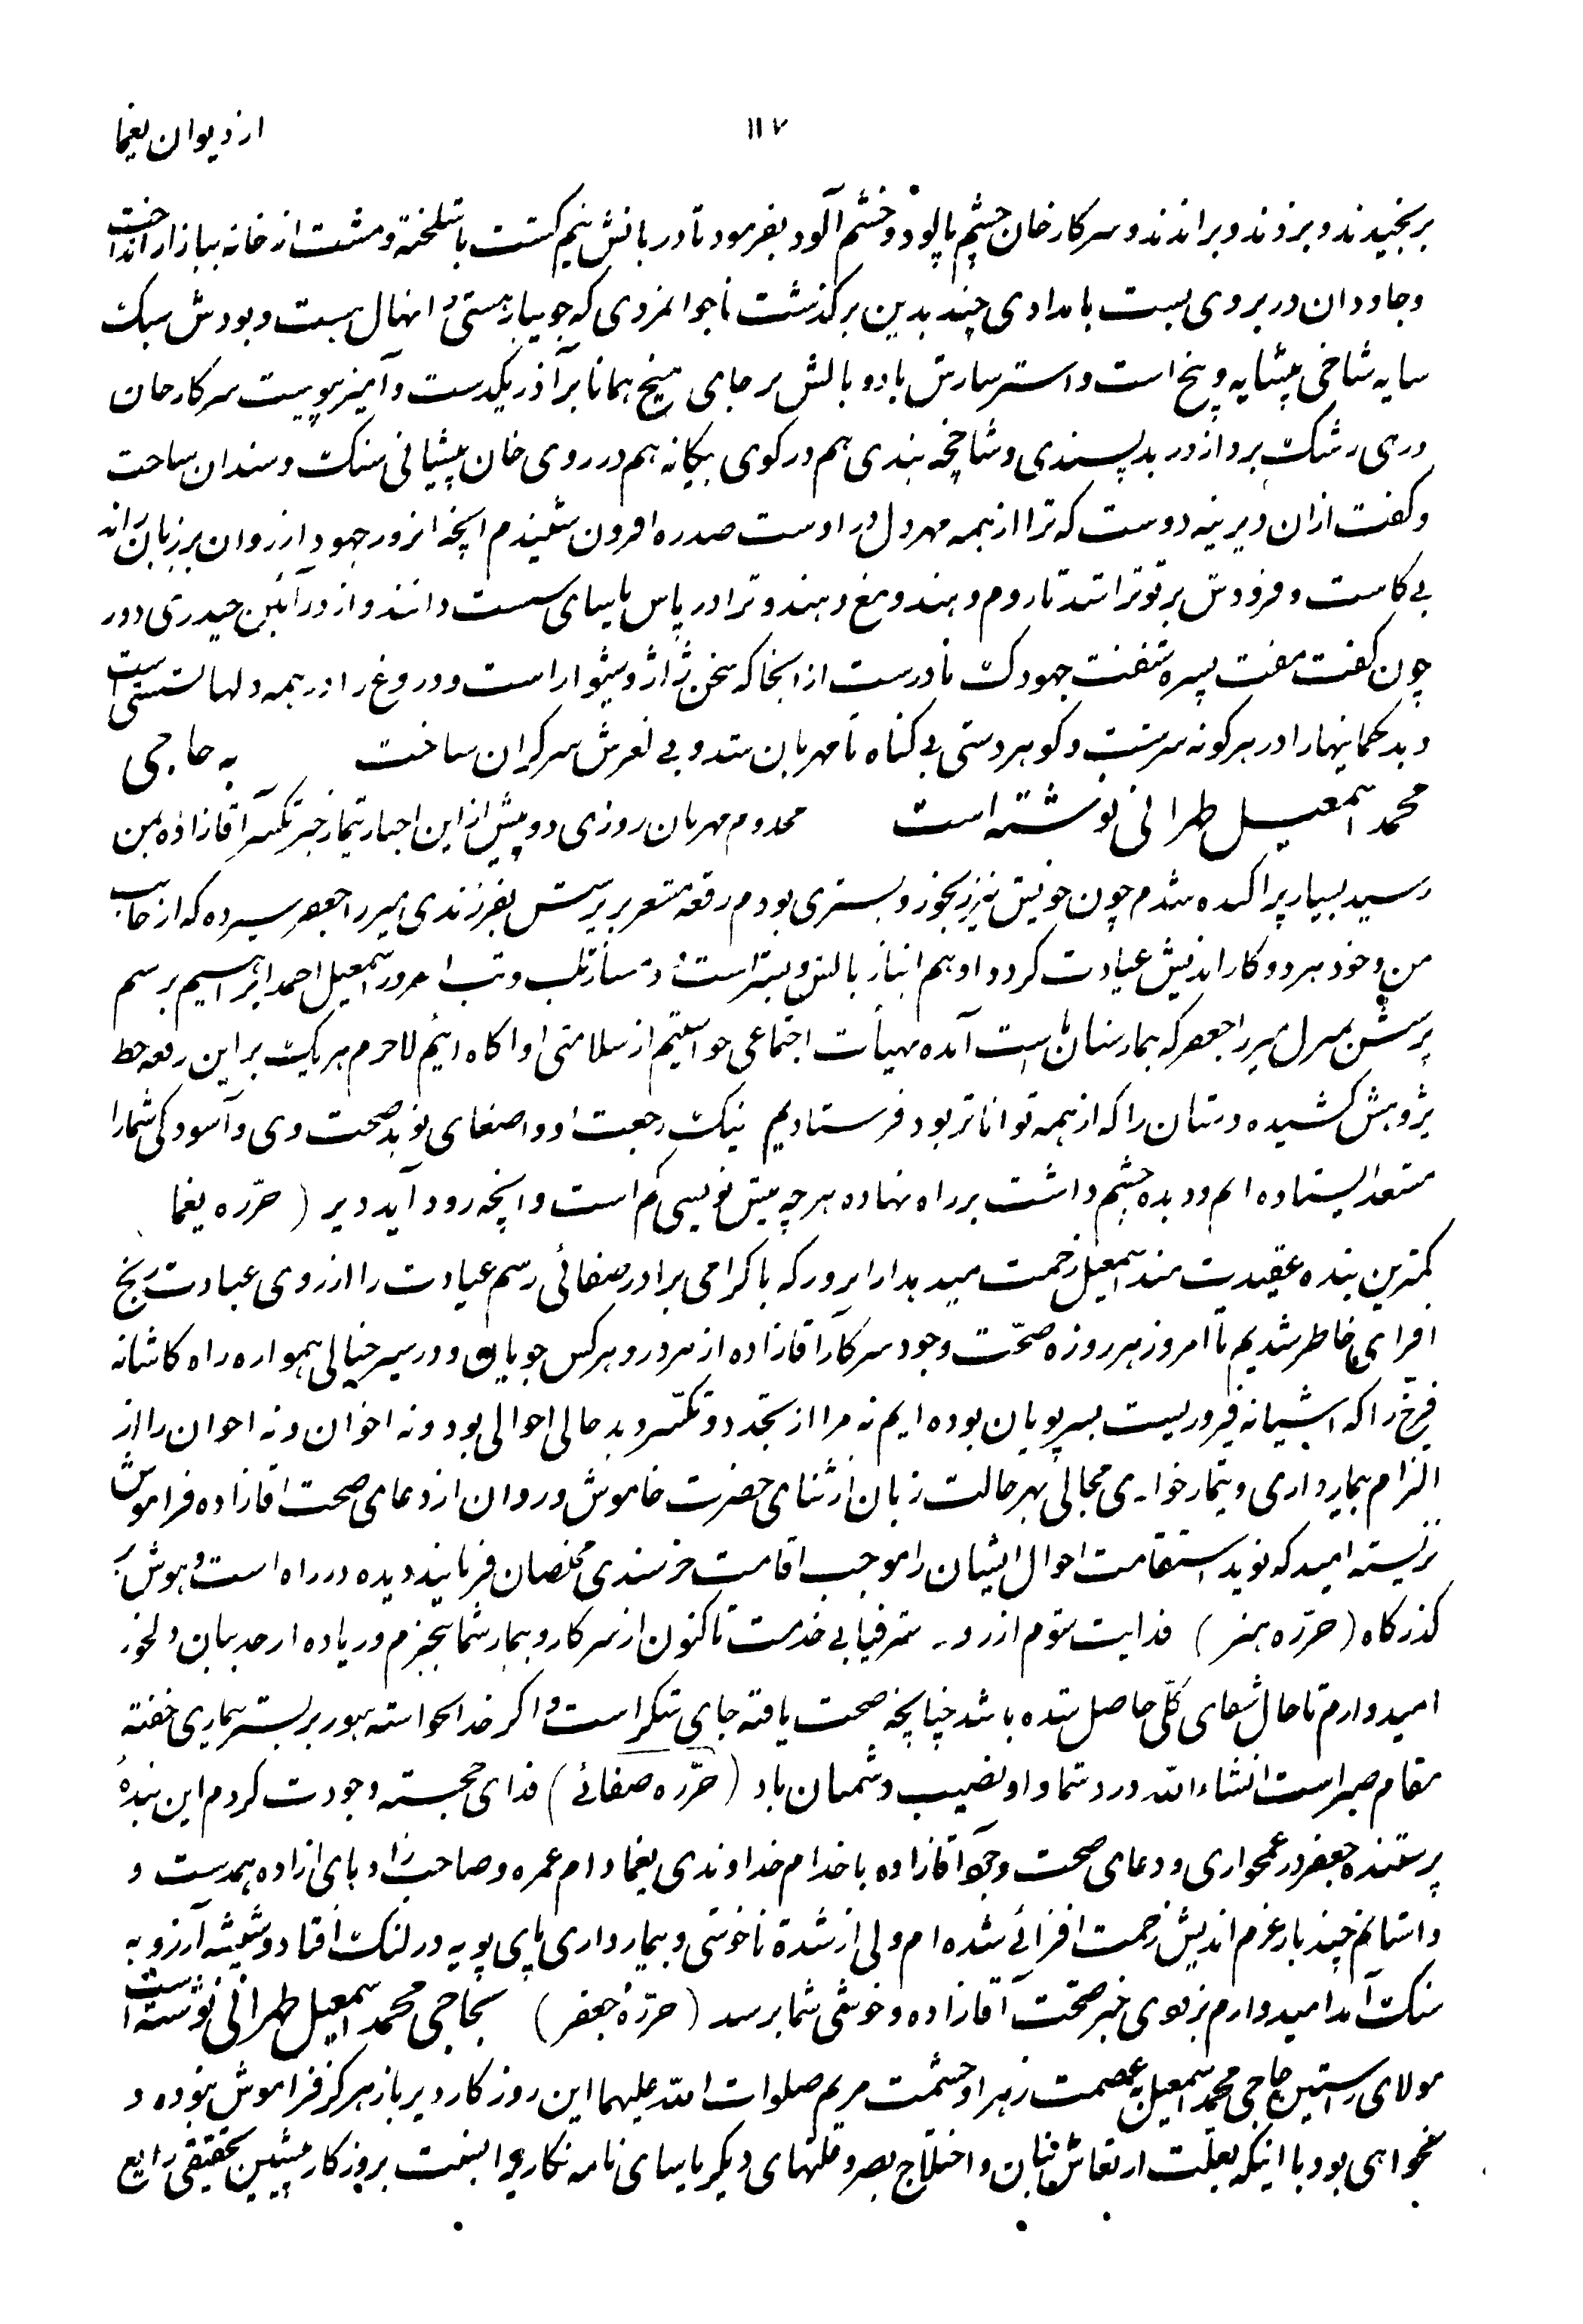 از دیوان یغما
۱۱۷
برنجیدند و بزدند و براندند و سرکار خان چشم پالود و خشم آلود بفرمود تا دربانش نیم کشت با تلخته و مشت از خانه ببازار انداخت
و جاودان در بروی بست بامدادی چند بدین برگذشت ناجوانمردی که جویبار هستی را نهال هست و بودش سبک
سایه شاخی بیشایه و بیخ است و استر سارش باد و بالش بر جای میخ همانا بر آذر یکدست و آمیز پیوست سرکار خان
دری رشک برو از در بدپسندی و شاخچه بندی هم در کوی بیکانه هم در روی خان پیشانی سنک و سندان ساخت
و کفت ازان دیرینه دوست که ترا از همه مهر دل در اوست صدره افزون شنیدم آنچه انروز جهود از روان بر زبان راند
بی کاست و فزودش بر تو تراشد تا روم و هند و مغ و هندو ترا در پاس یاسای سست دانند و از در آئین حیدری دور
چون کفت مفت پسره شفت جهودک نادرست از انجا که سخن ژاژ و شیوار است و دروغ را در همه دلها نشستی است
و بدکمانیها را در هرکونه سرشت و کوهر دستی بی کناه نامهربان شد و بی لغزش سرکران ساخت به حاجی
محمد اسمعیل طهرانی نوشته است مخدوم مهربان روزی دو پیش از این اخبار تیمار خبر تکسر آقازاده بمن
رسید بسیار پراکنده شدم چون خویش نیز رنجور و بستری بودم رقعه مشعر بر پرسش بفرزندی میرزا جعفر سپرده که از جانب
من و خود هر دو کار اندیش عیادت کردد او هم انباز بالش و بستر است و دمساز تاب و تب امروز اسمعیل احمد ابراهیم برسم
پرسش بمنزل میرزا جعفر که بیمارستان ماست آمده بهیأت اجتماعی خواستیم از سلامتی او اکاه ائیم لاجرم هریک بر این رقعه خط
پژوهش کشیده دستان را که از همه تواناتر بود فرستادیم نیک رجعت او و اصغای نوید صحت وی و آسودکی شما را
مستعد ایستاده ایم و دیده چشم داشت بر راه نهاده هر چه بیش نویسی کم است و آنچه زود آید دیر (حرّره یغما
کمترین بنده عقیدت مند اسمعیل زحمت میدهد از انروز که با کرامی برادر صفائی رسم عیادت را از روی عبادت رنج
افزای خاطر شدیم تا امروز هر روزه صحّت وجود سرکار آقازاده از هر در و هر کس جویا و در سیر خیالی همواره راه کاشانه
فرّخ را که آشیانه فیروزیست بسر پویان بوده ایم نه مرا از تجدد و تکسّر و بدحالی احوالی بود و نه اخوان و نه اخوان را از
الزام بیمارداری و تیمارخواری مجالی بهر حالت زبان از ثنای حضرت خاموش و روان از دعای صحت اقازاده فراموش
نزیسته امید که نوید استقامت احوال ایشان را موجب اقامت خرسندی مخلصان فرمایند دیده در راه است و هوش بر
کذرکاه (حرّره هنر) فدایت شوم از روز شرفیابی خدمت تاکنون از سرکار و بیمار شما بیخبرم و زیاده از حد بیان دلخور
امیدوارم تا حال شفای کلّی حاصل شده باشد چنانچه صحت یافته جای شکر است و اکر خدانخواسته هنوز بر بستر بیماری خفته
مقام صبر است انشاءالله درد شما و او نصیب دشمنان باد (حرّره صفائی) فدای خجسته وجودت کردم این بندهٔ
پرستنده جعفر در غمخواری و دعای صحت وجود آقازاده با خدام خداوندی یغما دام عمره و صاحب زادهای ازاده همدست و
داستانم چند بار عزم اندیش زحمت افزائی شده ام ولی از شدة ناخوشی و بیمارداری پای پویه در لنک افتاد و شیشه آرزو به
سنک آمد امیدوارم بزودی خبر صحّت آقازاده و خوشی شما برسد (حرّرهٔ جعفر) بحاجی محمد اسمعیل طهرانی نوشته است
مولای راستین حاجی محمد اسمعیل به عصمت زهرا و حشمت مریم صلوات الله علیهما این روزکار دیرباز هرکز فراموش نبوده و
نخواهی بود با اینکه بعلّت ارتعاش بنان و اختلاج بصر و علتهای دیکر یاسای نامه نکاری البفت بروزکار پیشین تحقیقی رایع